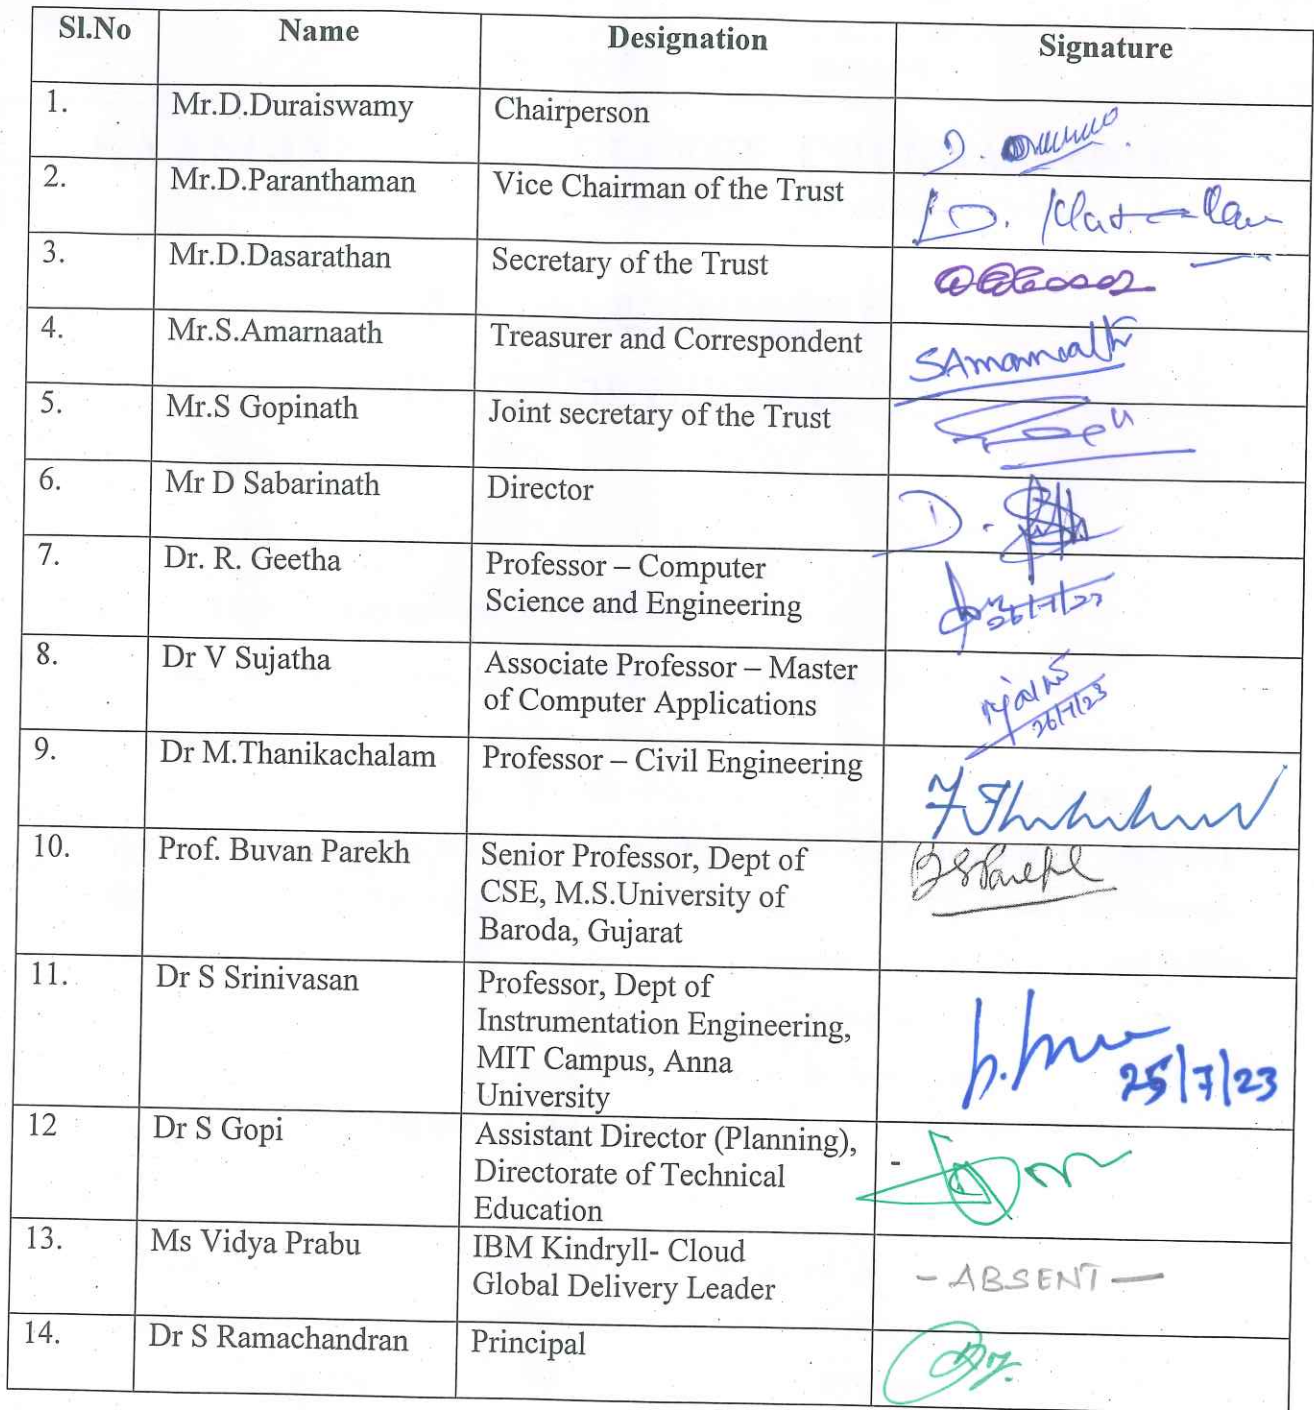 Sl.No Name Designation Signature
1. Mr.D.Duraiswamy Chairperson
D.
2. Mr.D.Paranthaman Vice Chairman of the Trust
D.
3. Mr.D.Dasarathan Secretary of the Trust
4. Mr.S.Amarnaath Treasurer and Correspondent
SAmarnaath
5. Mr.S Gopinath Joint secretary of the Trust
6. Mr D Sabarinath Director
D.
7. Dr. R. Geetha Professor – Computer
Science and Engineering
26/7/23
8. Dr V Sujatha Associate Professor – Master
of Computer Applications
26/7/23
9. Dr M.Thanikachalam Professor – Civil Engineering
10. Prof. Buvan Parekh Senior Professor, Dept of
CSE, M.S.University of
Baroda, Gujarat
11. Dr S Srinivasan Professor, Dept of
Instrumentation Engineering,
MIT Campus, Anna
University
25/7/23
12 Dr S Gopi Assistant Director (Planning), -
Directorate of Technical
Education
13. Ms Vidya Prabu IBM Kindryll- Cloud
Global Delivery Leader
- ABSENT —
14. Dr S Ramachandran Principal